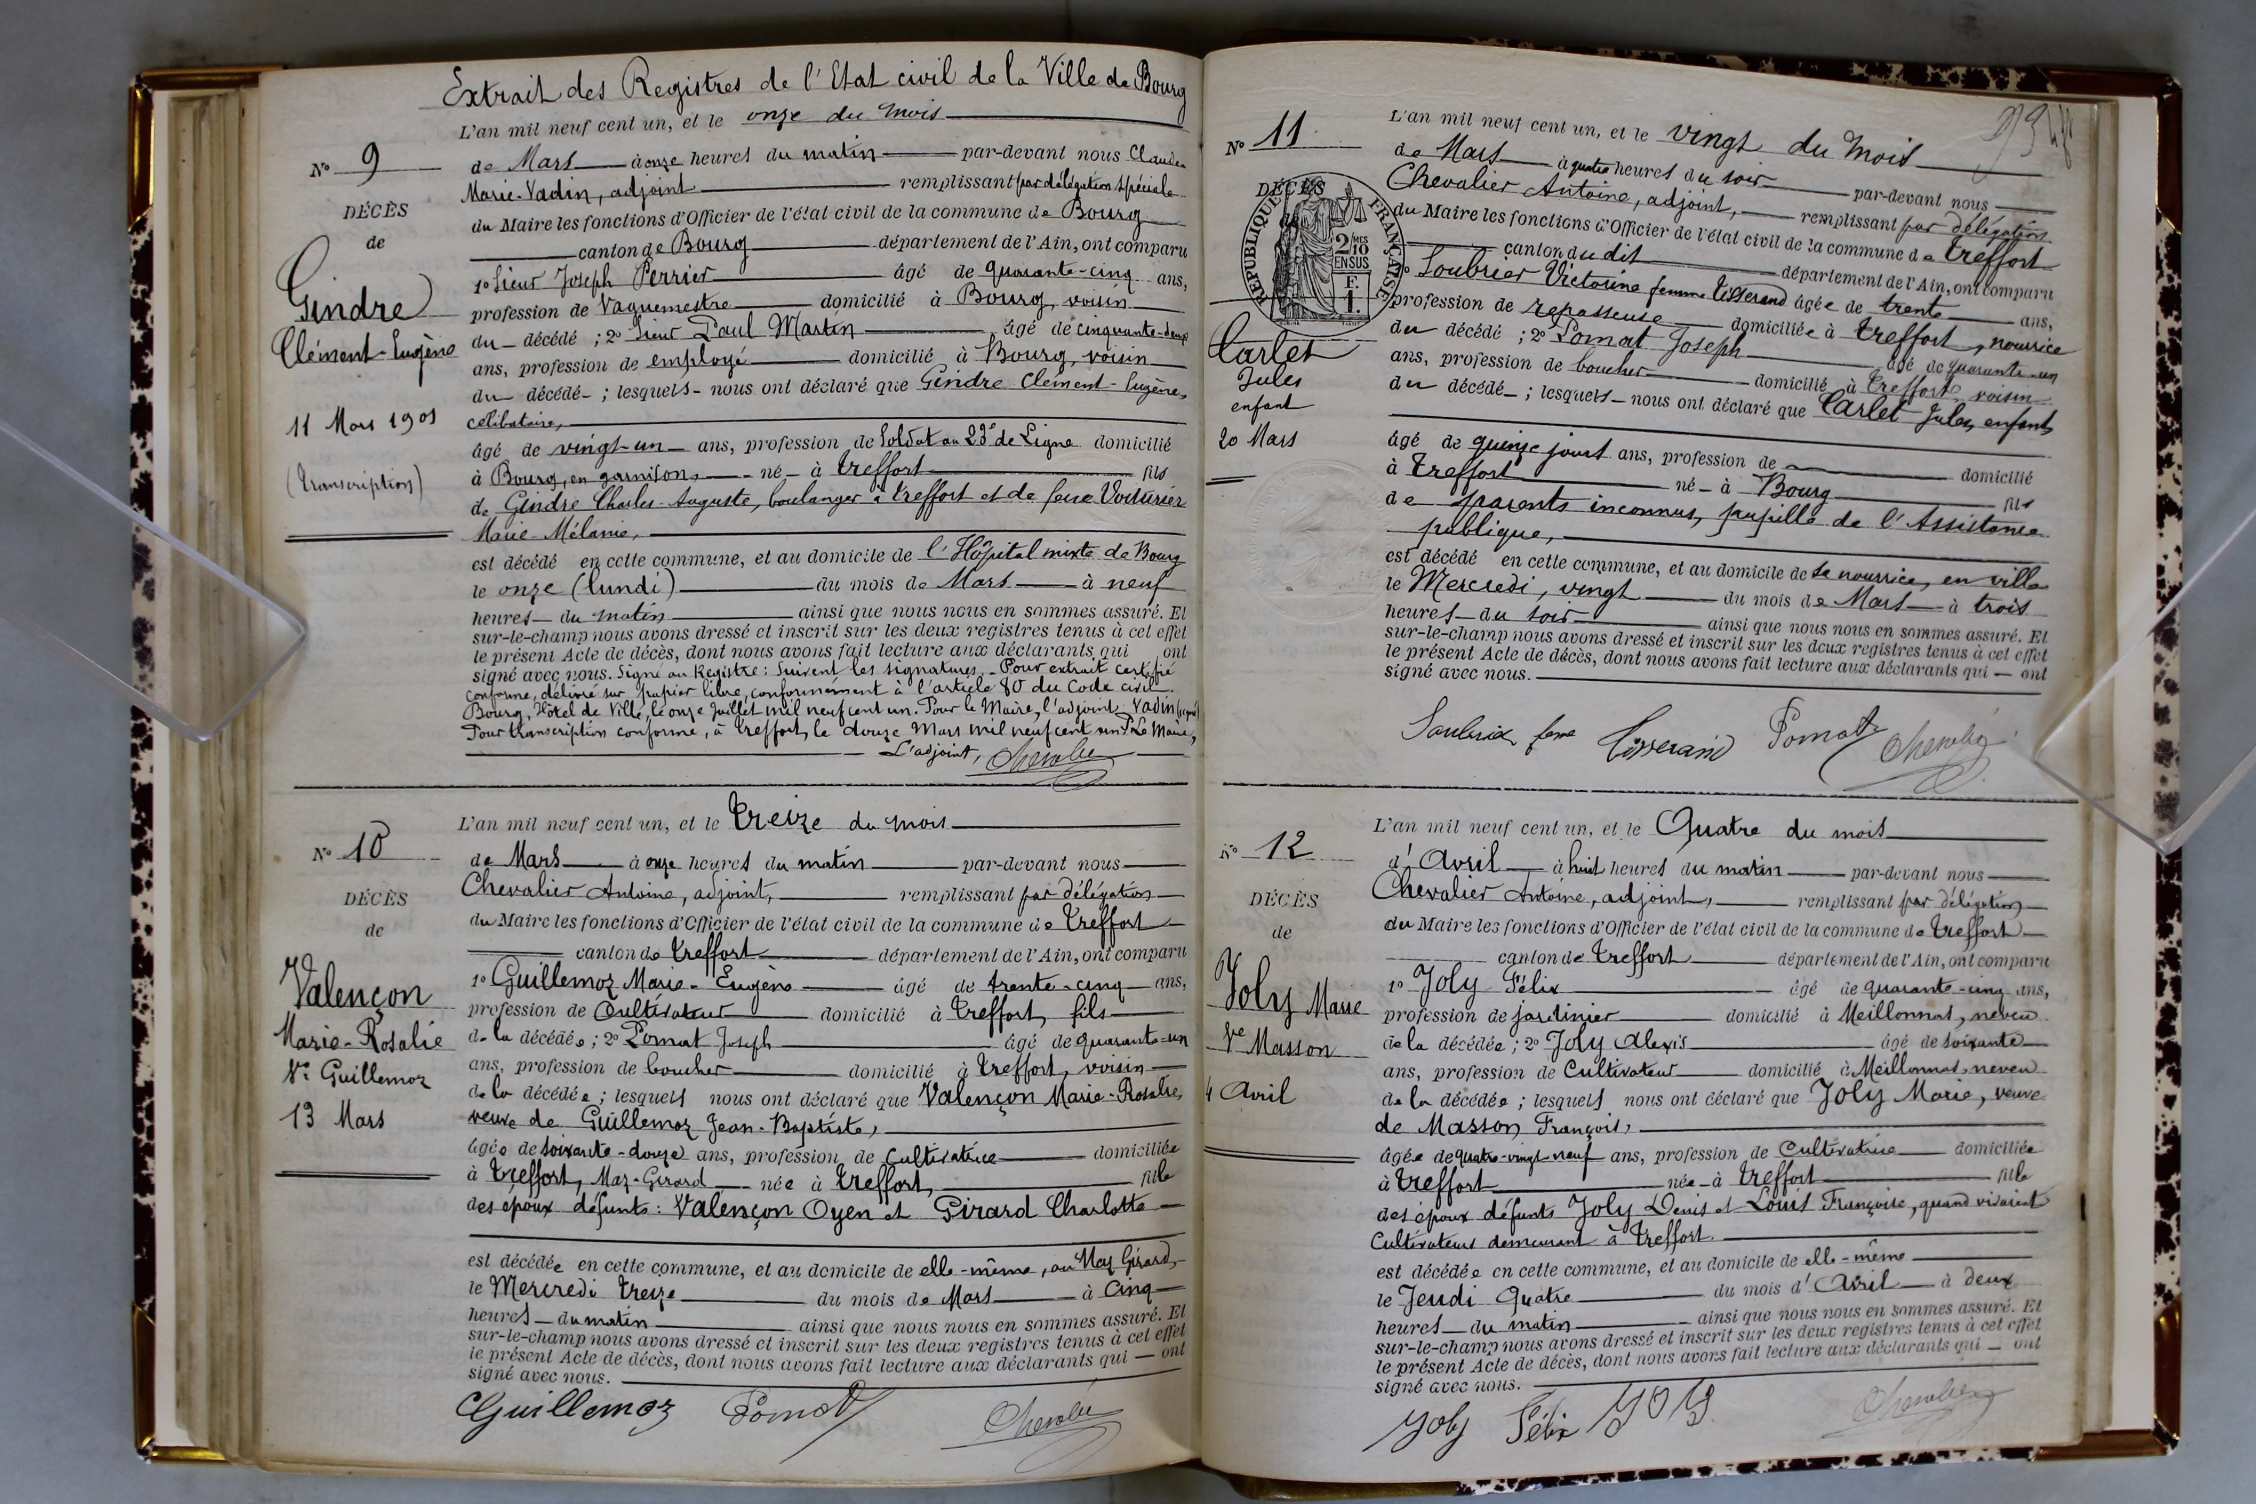 Extrait des Registres de l'Etat civil de la Ville de Bourg
L'an mil neuf cent un, et le onze du mois
N° 9
de Mars à onze heures du matin par-devant nous Claude
Marie Vadin, adjoint remplissant par délégation spéciale
DÉCÈS
du Maire les fonctions d'Officier de l'état civil de la commune de Bourg
de
canton de Bourg département de l'Ain, ont comparu
Gindre
1° Sieur Joseph Perrier âgé de quarante-cinq ans,
profession de Vaguemestre domicilié à Bourg, voisin
Clément-Eugène
du décédé ; 2° Sieur Paul Martin âgé de cinquante-deux
ans, profession de employé domicilié à Bourg, voisin
du décédé ; lesquels nous ont déclaré que Gindre Clément-Eugène,
11 Mars 1901
célibataire,
âgé de vingt-un ans, profession de Soldat au 23e de Ligne domicilié
(transcription)
à Bourg, en garnison, né à Treffort fils
de Gindre Charles-Auguste, boulanger à Treffort et de feue Voiturier
Marie-Mélanie,
est décédé en cette commune, et au domicile de l'Hôpital mixte de Bourg
le onze (lundi) du mois de Mars à neuf
heures du matin ainsi que nous nous en sommes assuré. Et
sur-le-champ nous avons dressé et inscrit sur les deux registres tenus à cet effet
le présent Acte de décès, dont nous avons fait lecture aux déclarants qui ont
signé avec nous. Signé au Registre : Suivent les signatures. - Pour extrait certifié
conforme, délivré sur papier libre, conformément à l'article 80 du Code civil.
Bourg, Hôtel de Ville, le onze Juillet mil neuf cent un. Pour le Maire, l'adjoint Vadin (signé)
Pour transcription conforme, à Treffort, le douze Mars mil neuf cent un P. Le Maire,
L'adjoint, Chevalier
L'an mil neuf cent un, et le treize du mois
N° 10
de Mars à onze heures du matin par-devant nous
Chevalier Antoine, adjoint, remplissant par délégation
DÉCÈS
du Maire les fonctions d'Officier de l'état civil de la commune de Treffort
de
canton de Treffort département de l'Ain, ont comparu
Valençon
1° Guillemoz Marie-Eugène âgé de trente-cinq ans,
profession de Cultivateur domicilié à Treffort, fils
Marie-Rosalie
de la décédée ; 2° Pomat Joseph âgé de quarante-un
ans, profession de boucher domicilié à Treffort, voisin
Ve Guillemoz
de la décédée ; lesquels nous ont déclaré que Valençon Marie-Rosalie,
13 Mars
veuve de Guillemoz Jean-Baptiste,
âgée de soixante-douze ans, profession de Cultivatrice domiciliée
à Treffort, Maz-Girard née à Treffort, fille
des époux défunts : Valençon Oyen et Girard Charlotte
est décédée en cette commune, et au domicile de elle-même, au Maz Girard,
le Mercredi treize du mois de Mars à Cinq
heures du matin ainsi que nous nous en sommes assuré. Et
sur-le-champ nous avons dressé et inscrit sur les deux registres tenus à cet effet
le présent Acte de décès, dont nous avons fait lecture aux déclarants qui ont
signé avec nous.
Guillemoz Pomat Chevalier
L'an mil neuf cent un, et le vingt du mois
N° 11
de Mars à quatre heures du soir par-devant nous
Chevalier Antoine, adjoint, remplissant par délégation
DÉCÈS
de
RÉPUBLIQUE FRANÇAISE
2 MES 10 EN SUS
F. 1.
du Maire les fonctions d'Officier de l'état civil de la commune de Treffort
canton du dit département de l'Ain, ont comparu
1° Soubrier Victorine femme Tisserand âgée de trente ans,
profession de repasseuse domiciliée à Treffort, nourrice
Carlet
du décédé ; 2° Pomat Joseph âgé de quarante-un
Jules
ans, profession de boucher domicilié à Treffort, voisin
enfant
du décédé ; lesquels nous ont déclaré que Carlet Jules, enfant,
20 Mars
âgé de quinze jours ans, profession de domicilié
à Treffort né à Bourg fils
de parents inconnus, pupille de l'Assistance
publique,
est décédé en cette commune, et au domicile de sa nourrice, en ville
le Mercredi, vingt du mois de Mars à trois
heures du soir ainsi que nous nous en sommes assuré. Et
sur-le-champ nous avons dressé et inscrit sur les deux registres tenus à cet effet
le présent Acte de décès, dont nous avons fait lecture aux déclarants qui ont
signé avec nous.
Soubrier feme Tisserand Pomat Chevalier
L'an mil neuf cent un, et le Quatre du mois
N° 12
d'Avril à huit heures du matin par-devant nous
Chevalier Antoine, adjoint, remplissant par délégation
DÉCÈS
du Maire les fonctions d'Officier de l'état civil de la commune de Treffort
de
canton de Treffort département de l'Ain, ont comparu
Joly Marie
1° Joly Félix âgé de quarante-cinq ans,
profession de jardinier domicilié à Meillonnas, neveu
Ve Masson
de la décédée ; 2° Joly Alexis âgé de soixante
ans, profession de Cultivateur domicilié à Meillonnas, neveu
4 Avril
de la décédée ; lesquels nous ont déclaré que Joly Marie, veuve
de Masson François,
âgée de quatre-vingt neuf ans, profession de Cultivatrice domiciliée
à Treffort née à Treffort fille
des époux défunts Joly Denis et Louis Françoise, quand vivaient
Cultivateurs demeurant à Treffort
est décédée en cette commune, et au domicile de elle-même
le Jeudi Quatre du mois d'Avril à deux
heures du matin ainsi que nous nous en sommes assuré. Et
sur-le-champ nous avons dressé et inscrit sur les deux registres tenus à cet effet
le présent Acte de décès, dont nous avons fait lecture aux déclarants qui ont
signé avec nous.
Joly Félix Joly Chevalier